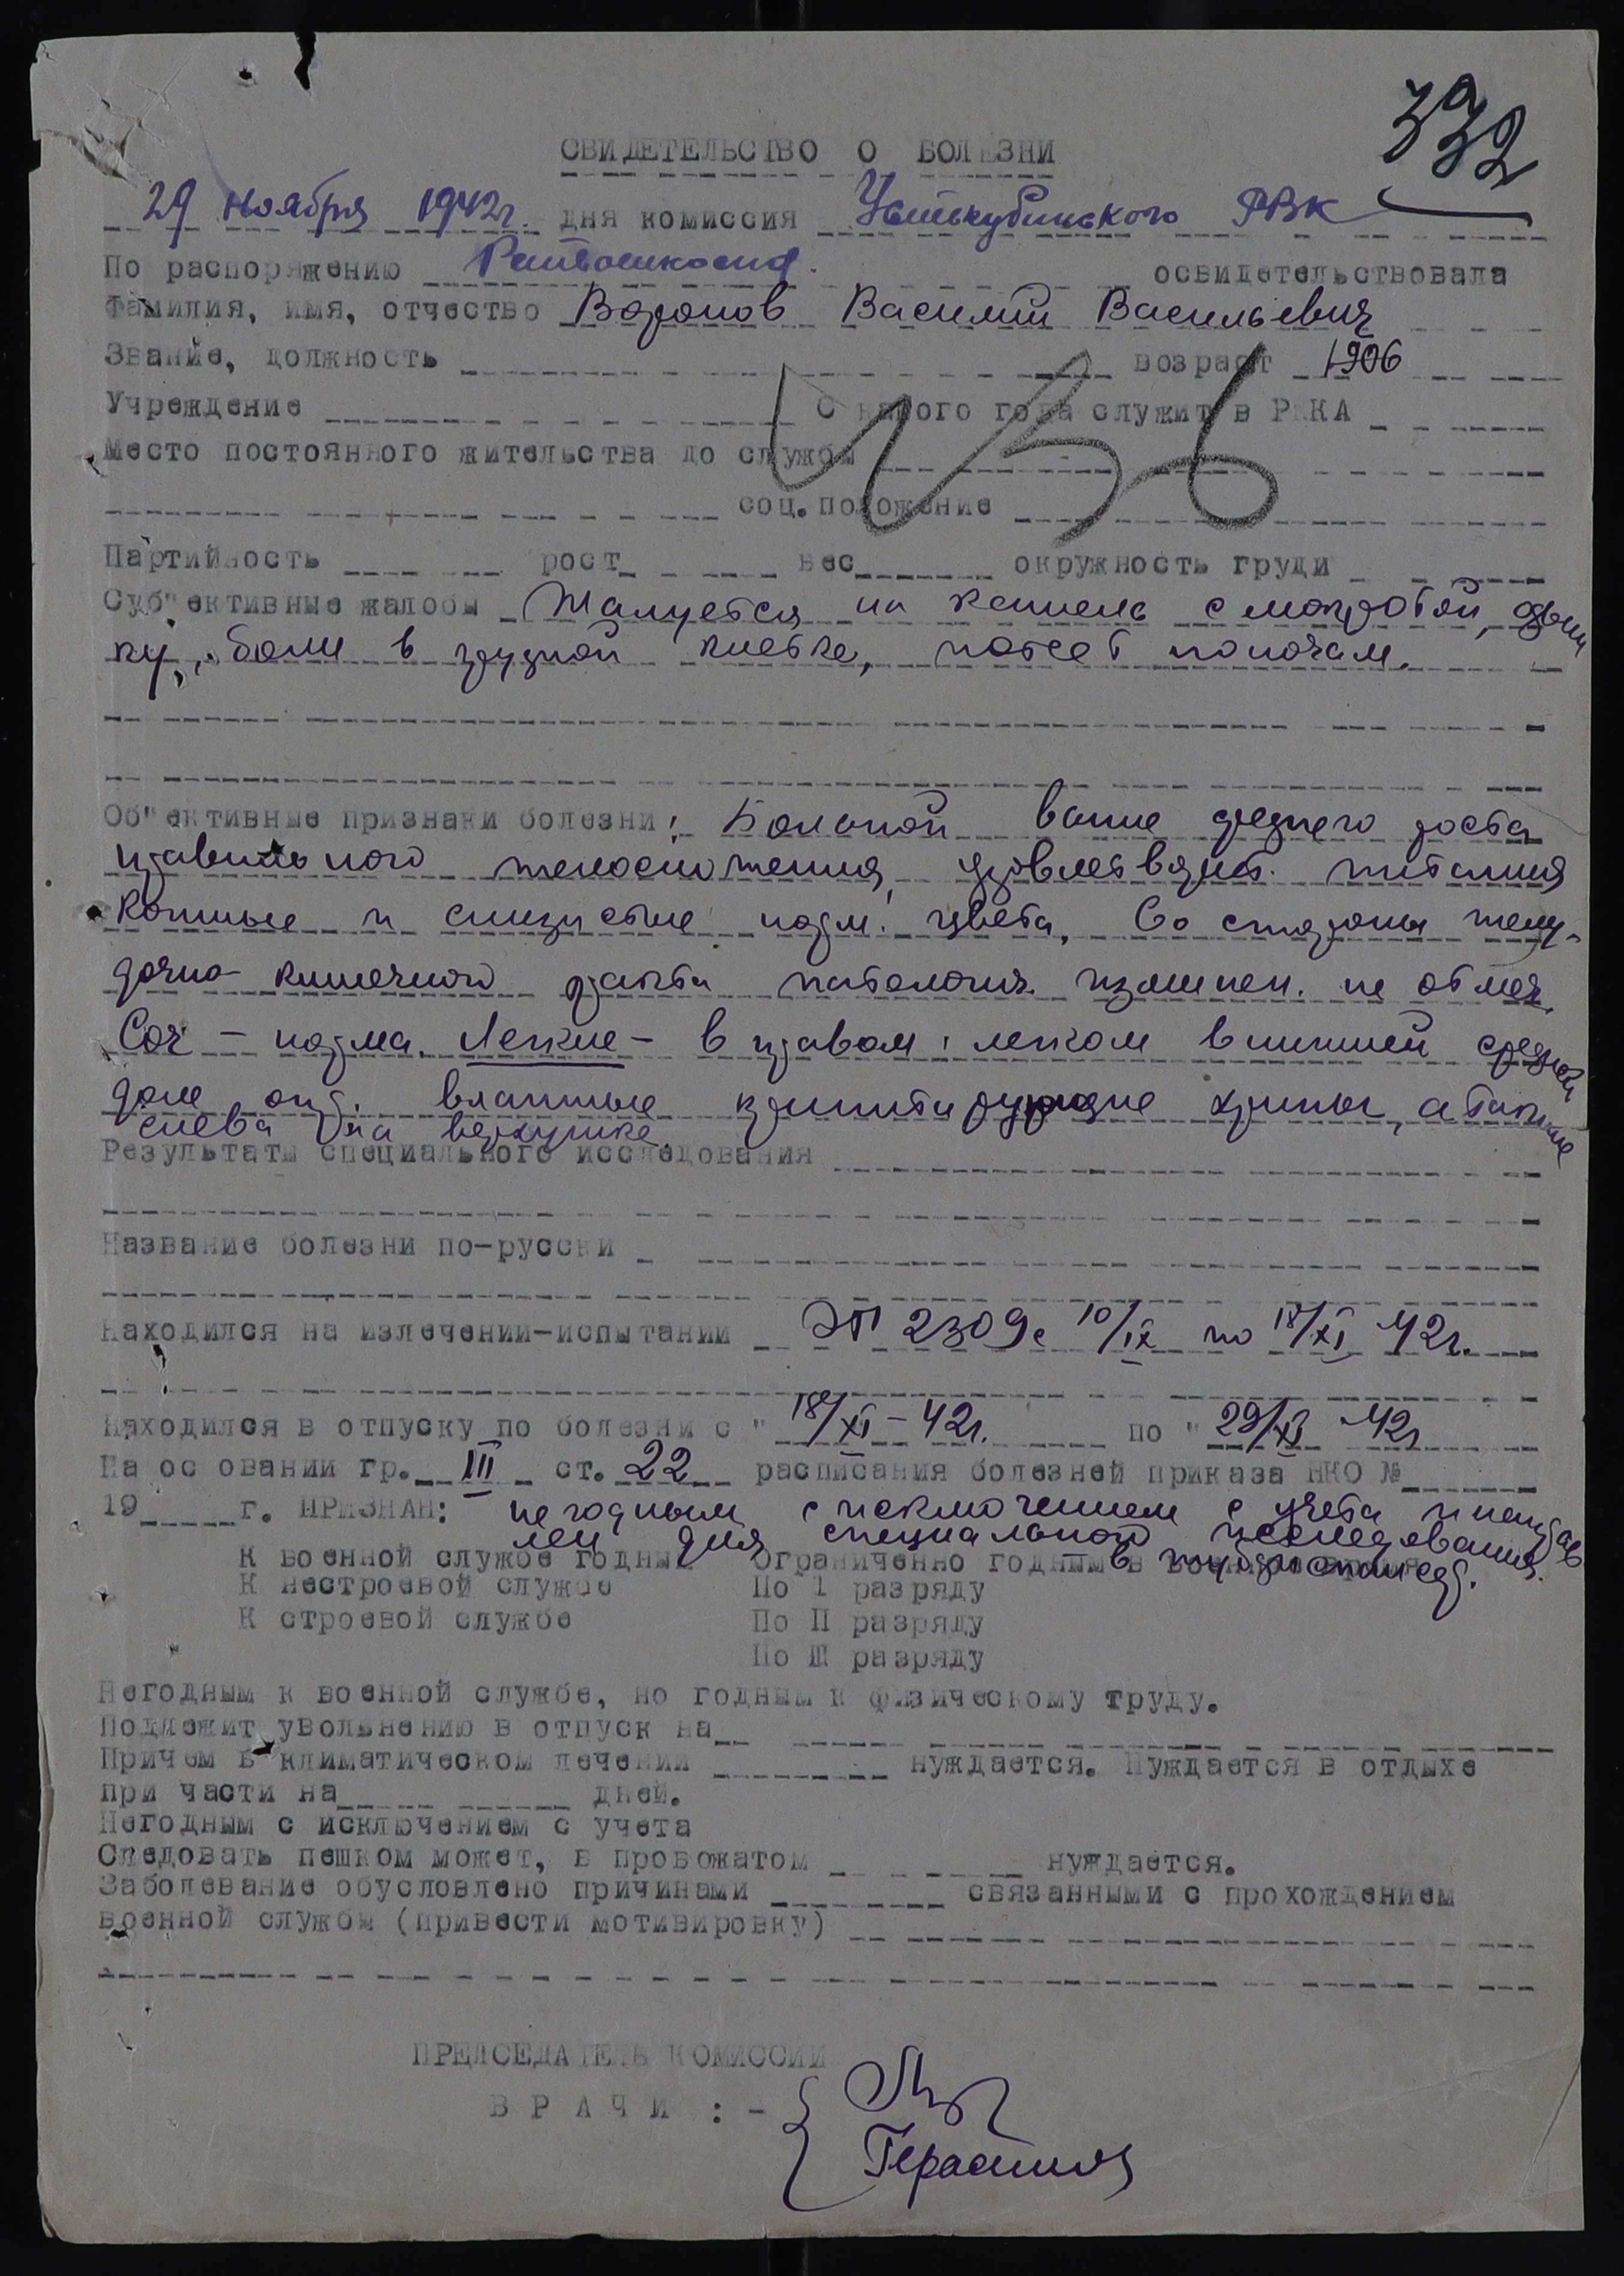 332
СВИДЕТЕЛЬСТВО О БОЛЕЗНИ
29 ноября 1942г. дня комиссия Устькубинского РВК
По распоряжению Райвоенкомат. освидетельствовала
Фамилия, имя, отчество Воронов Василий Васильевич
Звание, должность возраст 1906
Учреждение С какого года служит в РККА
Место постоянного жительства до службы
соц. положение
Партийность рост вес окружность груди
Суб"ективные жалобы Жалуется на кашель с мокротой, одыш
ку, боли в грудной клетке, потеет по ночам.
Об"ективные признаки болезни: Больной выше среднего роста
правильного телосложения, удовлетворит. питания
Кожные и слизистые норм. цвета, Со стороны желу-
дочно-кишечного тракта патологич. изменен. не отмеч.
Соч - норма. Легкие - в правом легком в нижней средней
доле опр. влажные крепитирующие хрипы, а также
слева на верхушке.
Результаты специального исследования
Название болезни по-русски
Находился на излечении-испытании ЭГ 2309 с 10/IX по 18/XI 42г.
Находился в отпуску по болезни с " 18/XI - 42г. по " 29/XI 42г
На основании гр. III ст. 22 расписания болезней приказа НКО №
19 г. ПРИЗНАН: не годным с исключением с учета и направ
лен для специального исследования
К военной службе годным Ограниченно годным в военное время
в туб. диспансер.
К нестроевой службе По I разряду
К строевой службе По II разряду
По III разряду
Негодным к военной службе, но годным к физическому труду.
Подлежит увольнению в отпуск на
Причем в климатическом лечении нуждается. Нуждается в отдыхе
при части на дней.
Негодным с исключением с учета
Следовать пешком может, в провожатом нуждается.
Заболевание обусловлено причинами связанными с прохождением
военной службы (привести мотивировку)
ПРЕДСЕДАТЕЛЬ КОМИССИИ
ВРАЧИ :-